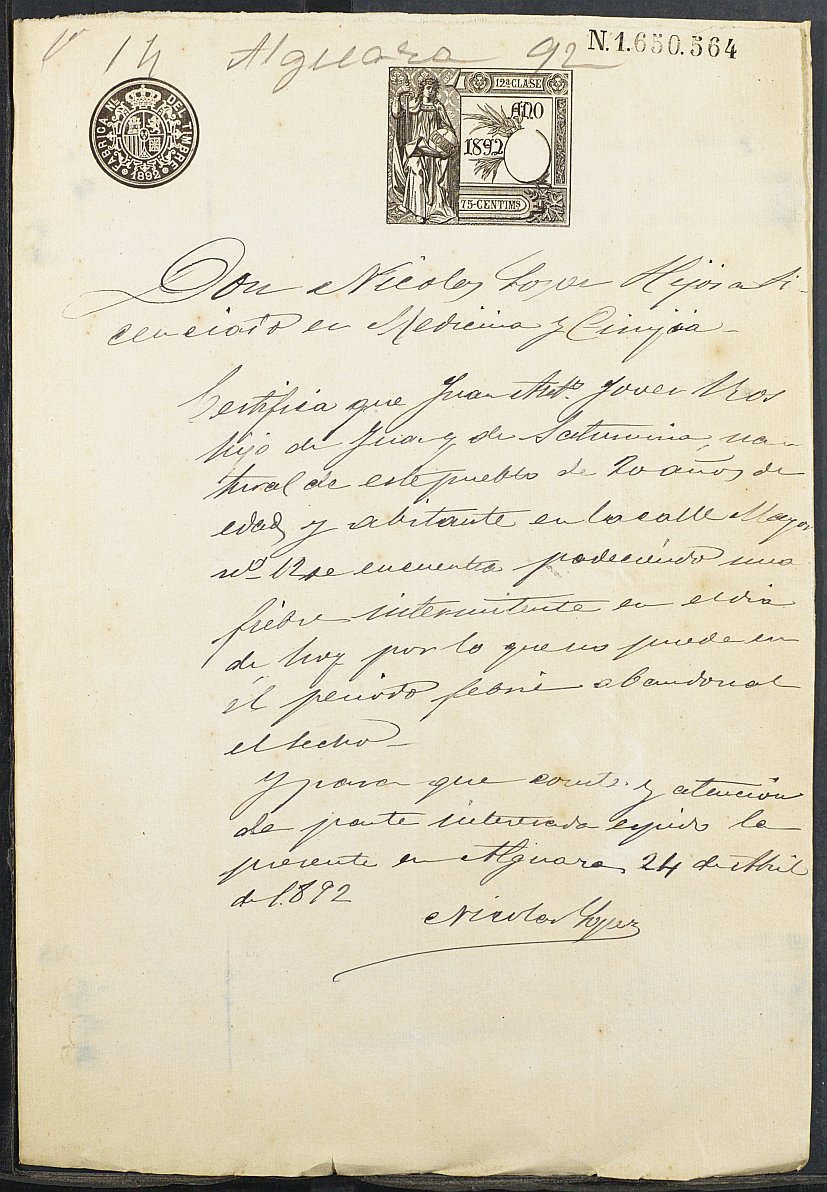 N.1.650.564
14 Alguara 92
12ª CLASE
AÑO
1892
75-CENTIMS
FABRICA NL. DEL TIMBRE
1892
Don Nicolas Lopez Hijosa Li-
cenciado en Medicina y Cirujia
Certifica que Juan Antº. Jover Ros
hijo de Juan y de Saturnina, na-
tural de este pueblo de 20 años de
edad y abitante en la calle Mayor
nº 12 se encuentra padeciendo una
fiebre intermitente en el dia
de hoy por lo que no puede en
el periodo febril abandonal
el lecho
Y para que conste y atención
de parte interesada espido la
presente en Alguara 24 de Abril
de 1.892
Nicolas Lopez